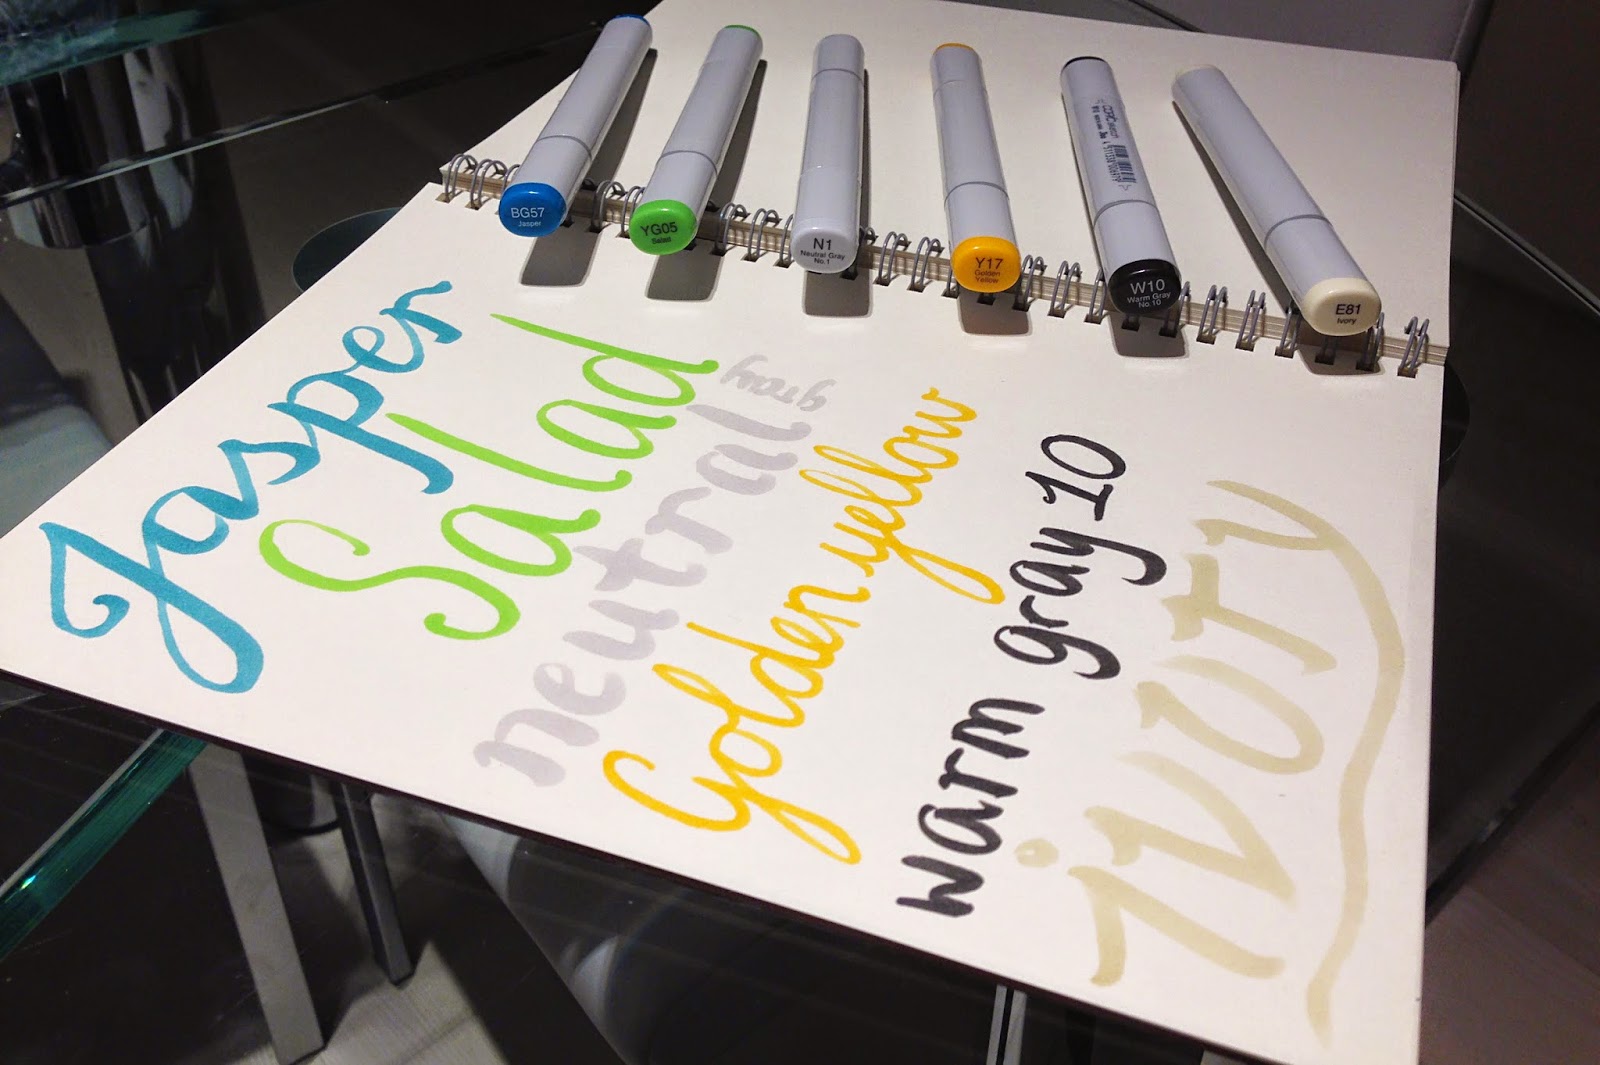 BG57
Jasper
YG05
Salad
N1
Neutral Gray
No.1
Y17
Golden
Yellow
W10
Warm Gray
No.10
E81
Ivory
COPIC
Jasper
Salad
neutral
gray
Golden yellow
warm gray 10
iVORY